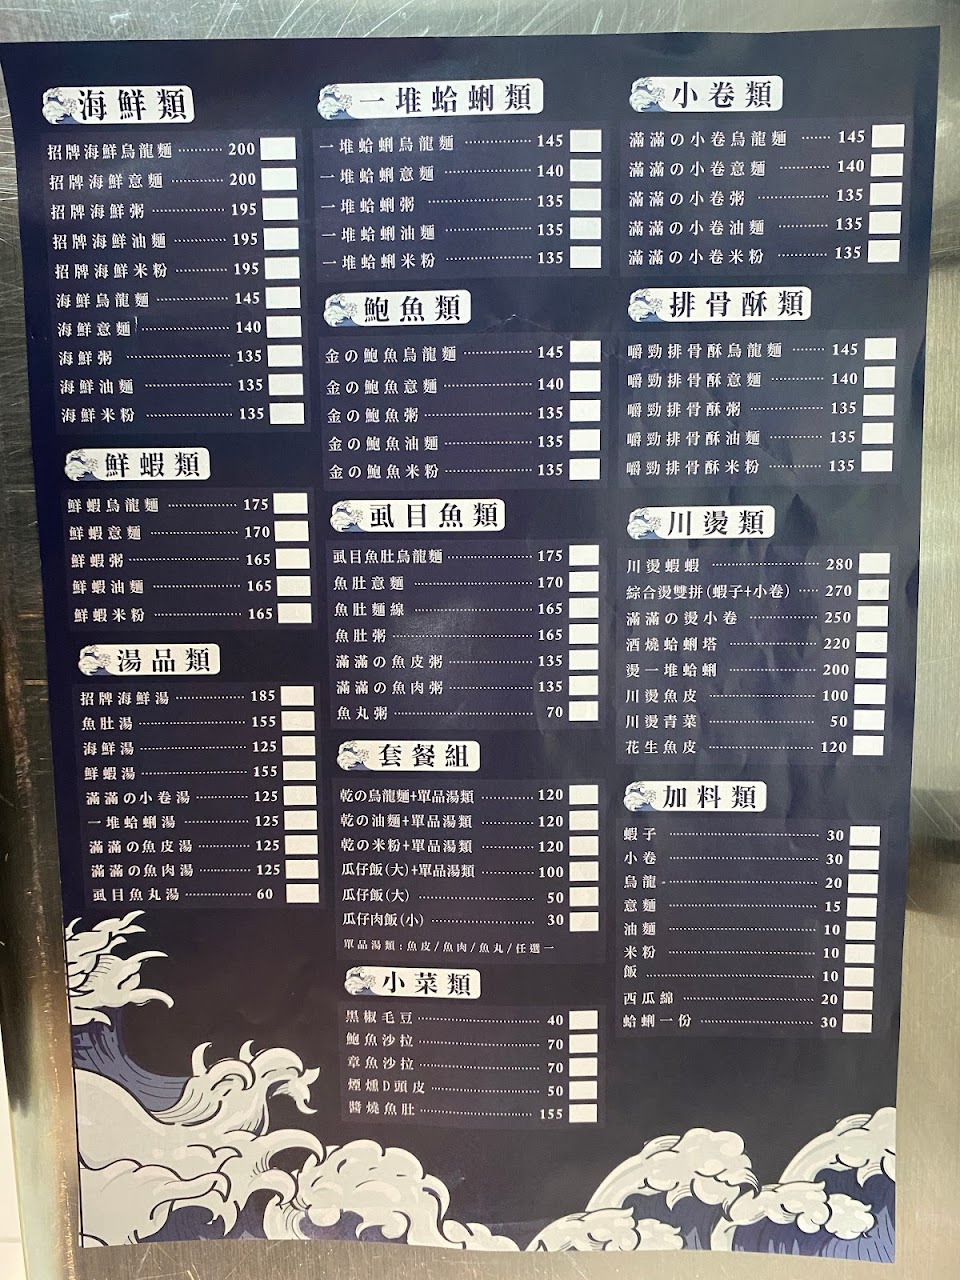 海鮮類
招牌海鮮烏龍麵 ………… 200
招牌海鮮意麵 ………… 200
招牌海鮮粥 ………… 195
招牌海鮮油麵 ………… 195
招牌海鮮米粉 ………… 195
海鮮烏龍麵 ………… 145
海鮮意麵 ………… 140
海鮮粥 ………… 135
海鮮油麵 ………… 135
海鮮米粉 ………… 135
鮮蝦類
鮮蝦烏龍麵 ………… 175
鮮蝦意麵 ………… 170
鮮蝦粥 ………… 165
鮮蝦油麵 ………… 165
鮮蝦米粉 ………… 165
湯品類
招牌海鮮湯 ………… 185
魚肚湯 ………… 155
海鮮湯 ………… 125
鮮蝦湯 ………… 155
滿滿の小卷湯 ………… 125
一堆蛤蜊湯 ………… 125
滿滿の魚皮湯 ………… 125
滿滿の魚肉湯 ………… 125
虱目魚丸湯 ………… 60
一堆蛤蜊類
一堆蛤蜊烏龍麵 ………… 145
一堆蛤蜊意麵 ………… 140
一堆蛤蜊粥 ………… 135
一堆蛤蜊油麵 ………… 135
一堆蛤蜊米粉 ………… 135
鮑魚類
金の鮑魚烏龍麵 ………… 145
金の鮑魚意麵 ………… 140
金の鮑魚粥 ………… 135
金の鮑魚油麵 ………… 135
金の鮑魚米粉 ………… 135
虱目魚類
虱目魚肚烏龍麵 ………… 175
魚肚意麵 ………… 170
魚肚麵線 ………… 165
魚肚粥 ………… 165
滿滿の魚皮粥 ………… 135
滿滿の魚肉粥 ………… 135
魚丸粥 ………… 70
套餐組
乾の烏龍麵+單品湯類 ………… 120
乾の油麵+單品湯類 ………… 120
乾の米粉+單品湯類 ………… 120
瓜仔飯(大)+單品湯類 ………… 100
瓜仔飯(大) ………… 50
瓜仔肉飯(小) ………… 30
單品湯類:魚皮/魚肉/魚丸/任選一
小菜類
黑椒毛豆 ………… 40
鮑魚沙拉 ………… 70
章魚沙拉 ………… 70
煙燻D頭皮 ………… 50
醬燒魚肚 ………… 155
小卷類
滿滿の小卷烏龍麵 …… 145
滿滿の小卷意麵 ………… 140
滿滿の小卷粥 ………… 135
滿滿の小卷油麵 ………… 135
滿滿の小卷米粉 ………… 135
排骨酥類
嚼勁排骨酥烏龍麵 ………… 145
嚼勁排骨酥意麵 ………… 140
嚼勁排骨酥粥 ………… 135
嚼勁排骨酥油麵 ………… 135
嚼勁排骨酥米粉 ………… 135
川燙類
川燙蝦蝦 ………… 280
綜合燙雙拼(蝦子+小卷) …… 270
滿滿の燙小卷 ………… 250
酒燒蛤蜊塔 ………… 220
燙一堆蛤蜊 ………… 200
川燙魚皮 ………… 100
川燙青菜 ………… 50
花生魚皮 ………… 120
加料類
蝦子 ………… 30
小卷 ………… 30
烏龍 ………… 20
意麵 ………… 15
油麵 ………… 10
米粉 ………… 10
飯 ………… 10
西瓜綿 ………… 20
蛤蜊一份 ………… 30